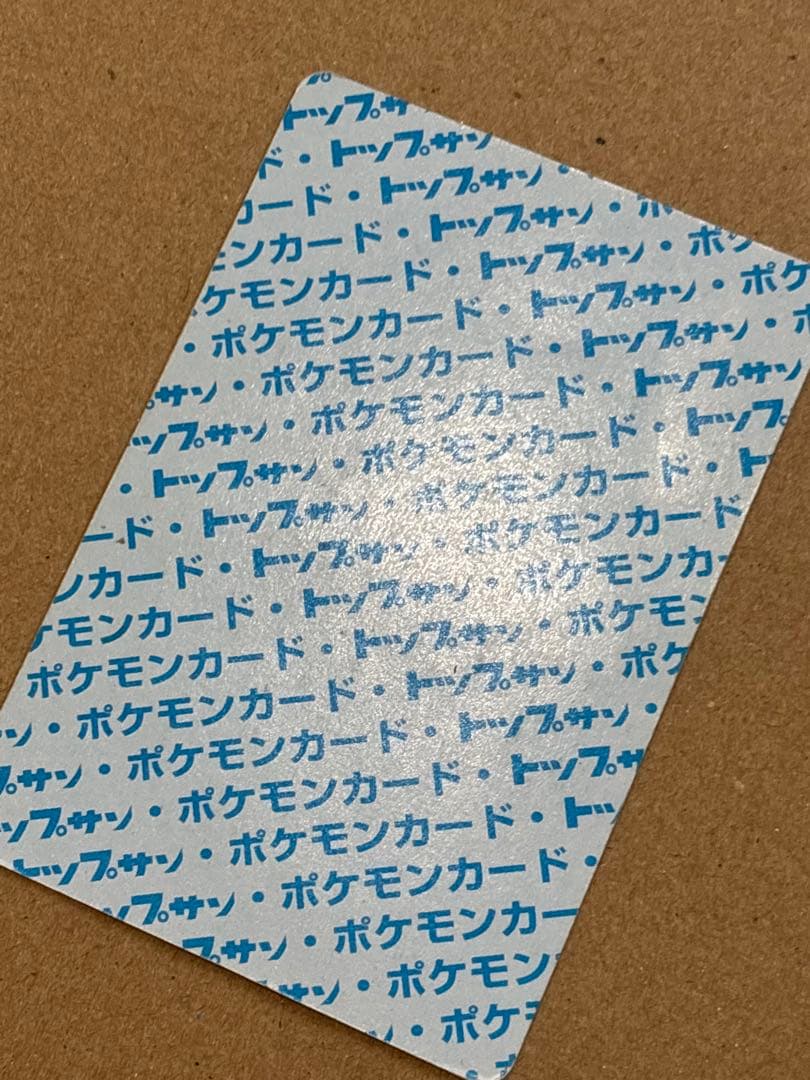 トップサ
ド・トップサン・
カード・トップサン・ポ
モンカード・トップサン・ポケ
ポケモンカード・トップサン・ポケ
・ポケモンカード・トップサン・ポ
サン・ポケモンカード・トップサン・ポ
ップサン・ポケモンカード・トップサン
・トップサン・ポケモンカード・トップ
ード・トップサン・ポケモンカード・ト
ンカード・トップサン・ポケモンカード
ケモンカード・トップサン・ポケモンカ
ポケモンカード・トップサン・ポケモン
ン・ポケモンカード・トップサン・ポケ
プサン・ポケモンカード・トップサン・
ップサン・ポケモンカード・トップサ
トップサン・ポケモンカード・トッ
ップサン・ポケモンカード・
プサン・ポケモンカー
サン・ポケモン
・ポケ